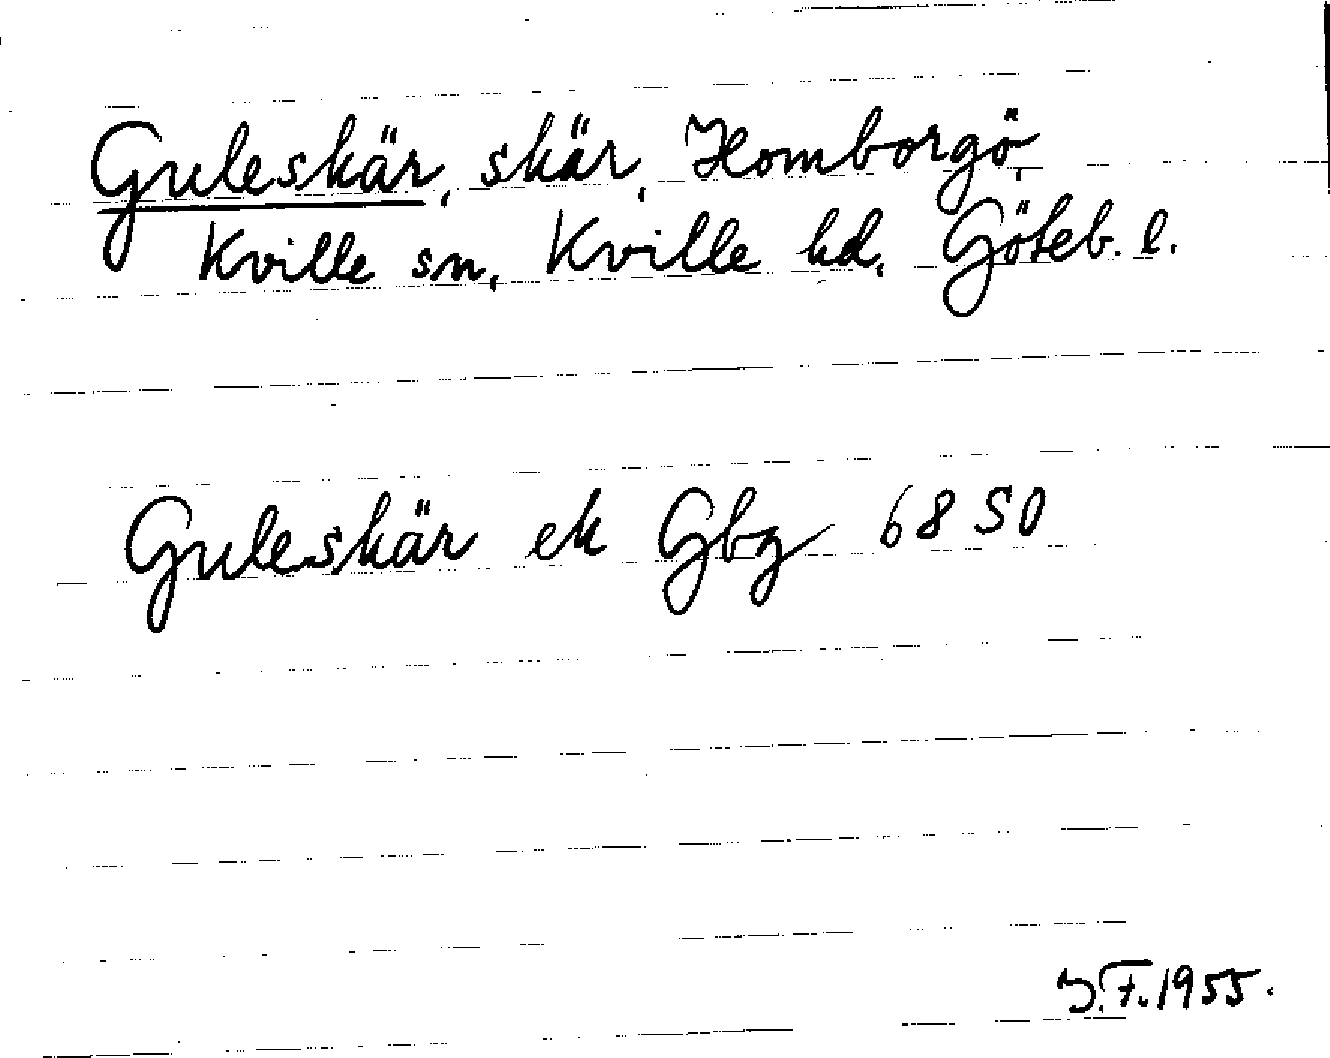 Guleskär, skär, Homborgö,
Kville sn, Kville hd, Göteb. l.
Guleskär ek Gbg 68 SO
I.F. 1955.